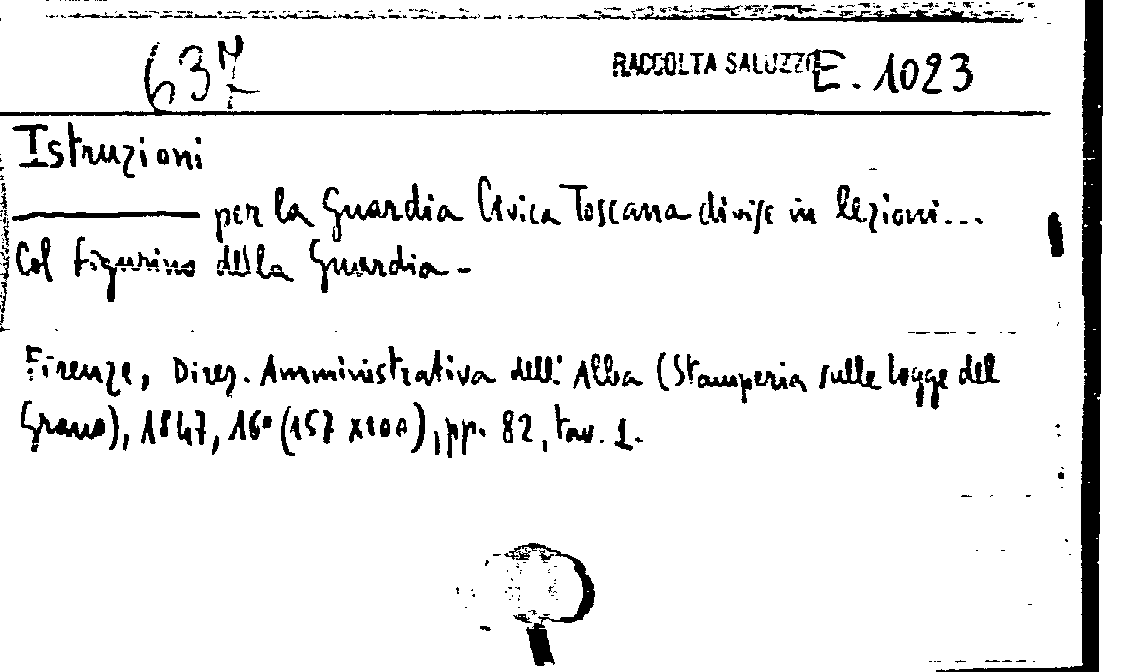 637 RACCOLTA SALUZZO E. 1023
Istruzioni
——— per la Guardia Civica Toscana divise in lezioni...
Col figurino della Guardia -
Firenze, Direz. Amministrativa dell' Alba (Stamperia sulle logge del
Grano), 1847, 16° (157 x100), pp. 82, tav. 1.